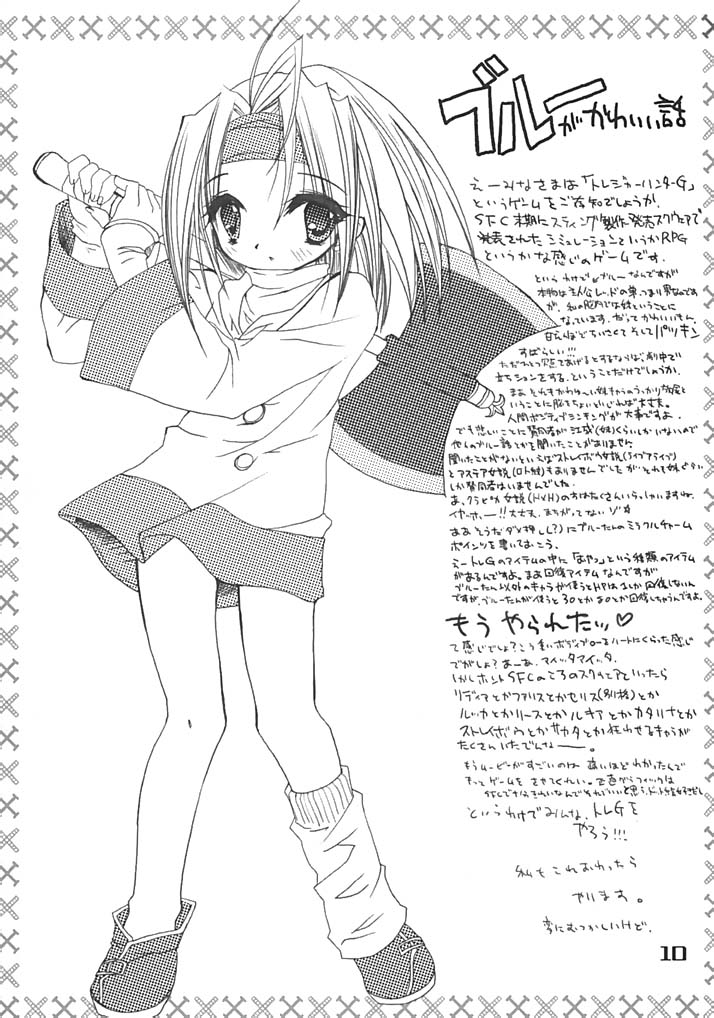 ブルーがかわいい話
えーみなさまは「トレジャーハンターG」
というゲームをご存知でしょうか。
SFC末期にスティング製作発売スクウェアで
発表されたシミュレーションというかRPG
というかな感じのゲームです。
というわけでブルーなんですが
本物は主人公レッドの弟、つまり男なんです
が、私の脳内では妹ということに
なっています。だってかわいいもん。
ちいさくてそしてパツキン
すばらしい!!!
ただひとつ難をあげるとするならば、劇中で
立ちションをする、ということだけでしょうか。
まあ それもかわいい妹キャラのうっかり放尿と
いうことに脳をちょいといじれば大丈夫。
人間ポジティブシンキングが大事ですよ。
でも悲しいことに賛同者が(妹)くらいしかいないので
他人のブルー話とかを聞いたことがありません
聞いたことがないといえばストレイボウ女説(ライブアライブ)
とアステア女説もありませんでしたが、それも妹ぐらい
しか賛同者はいませんでした。
あ、クラピカ女説(H×H)の方はたくさんいらっしゃいますね。
イヤーホーー!!大丈夫、まちがってないゾ☆
ああそうだ ダメ押し(?)にブルーたんのミラクルチャーム
ポインツを書いておこう。
えートレGのアイテムの中に「おやつ」という種類のアイテム
があるんですよ。まあ回復アイテムなんですが
ブルーたん以外のキャラが使うとHPは1しか回復しないん
ですが、ブルーたんが使うと30とか50とか回復しちゃうんですよ。
もうやられたッ♡
て感じでしょ?こう重いボディブローをハートにくらった感じ
でがしょ?あーあ、アイッタアイッタ。
しかしホントSFCのころのスクウェアといったら
リディアとかファリスとかセリス(別格)とか
ルッカとかリースとかルキアとかカタリナとか
ストレイボウとかサカタとか狂わせるキャラが
たくさんいたでんなーー。
もうムービーがすごいのは 痛いほどわかったんで
もっとゲームをさせてくれい。
というわけでみんな、トレGを
やろう!!!
私もこれおわったら
やります。
変にむつかしいけど。
10